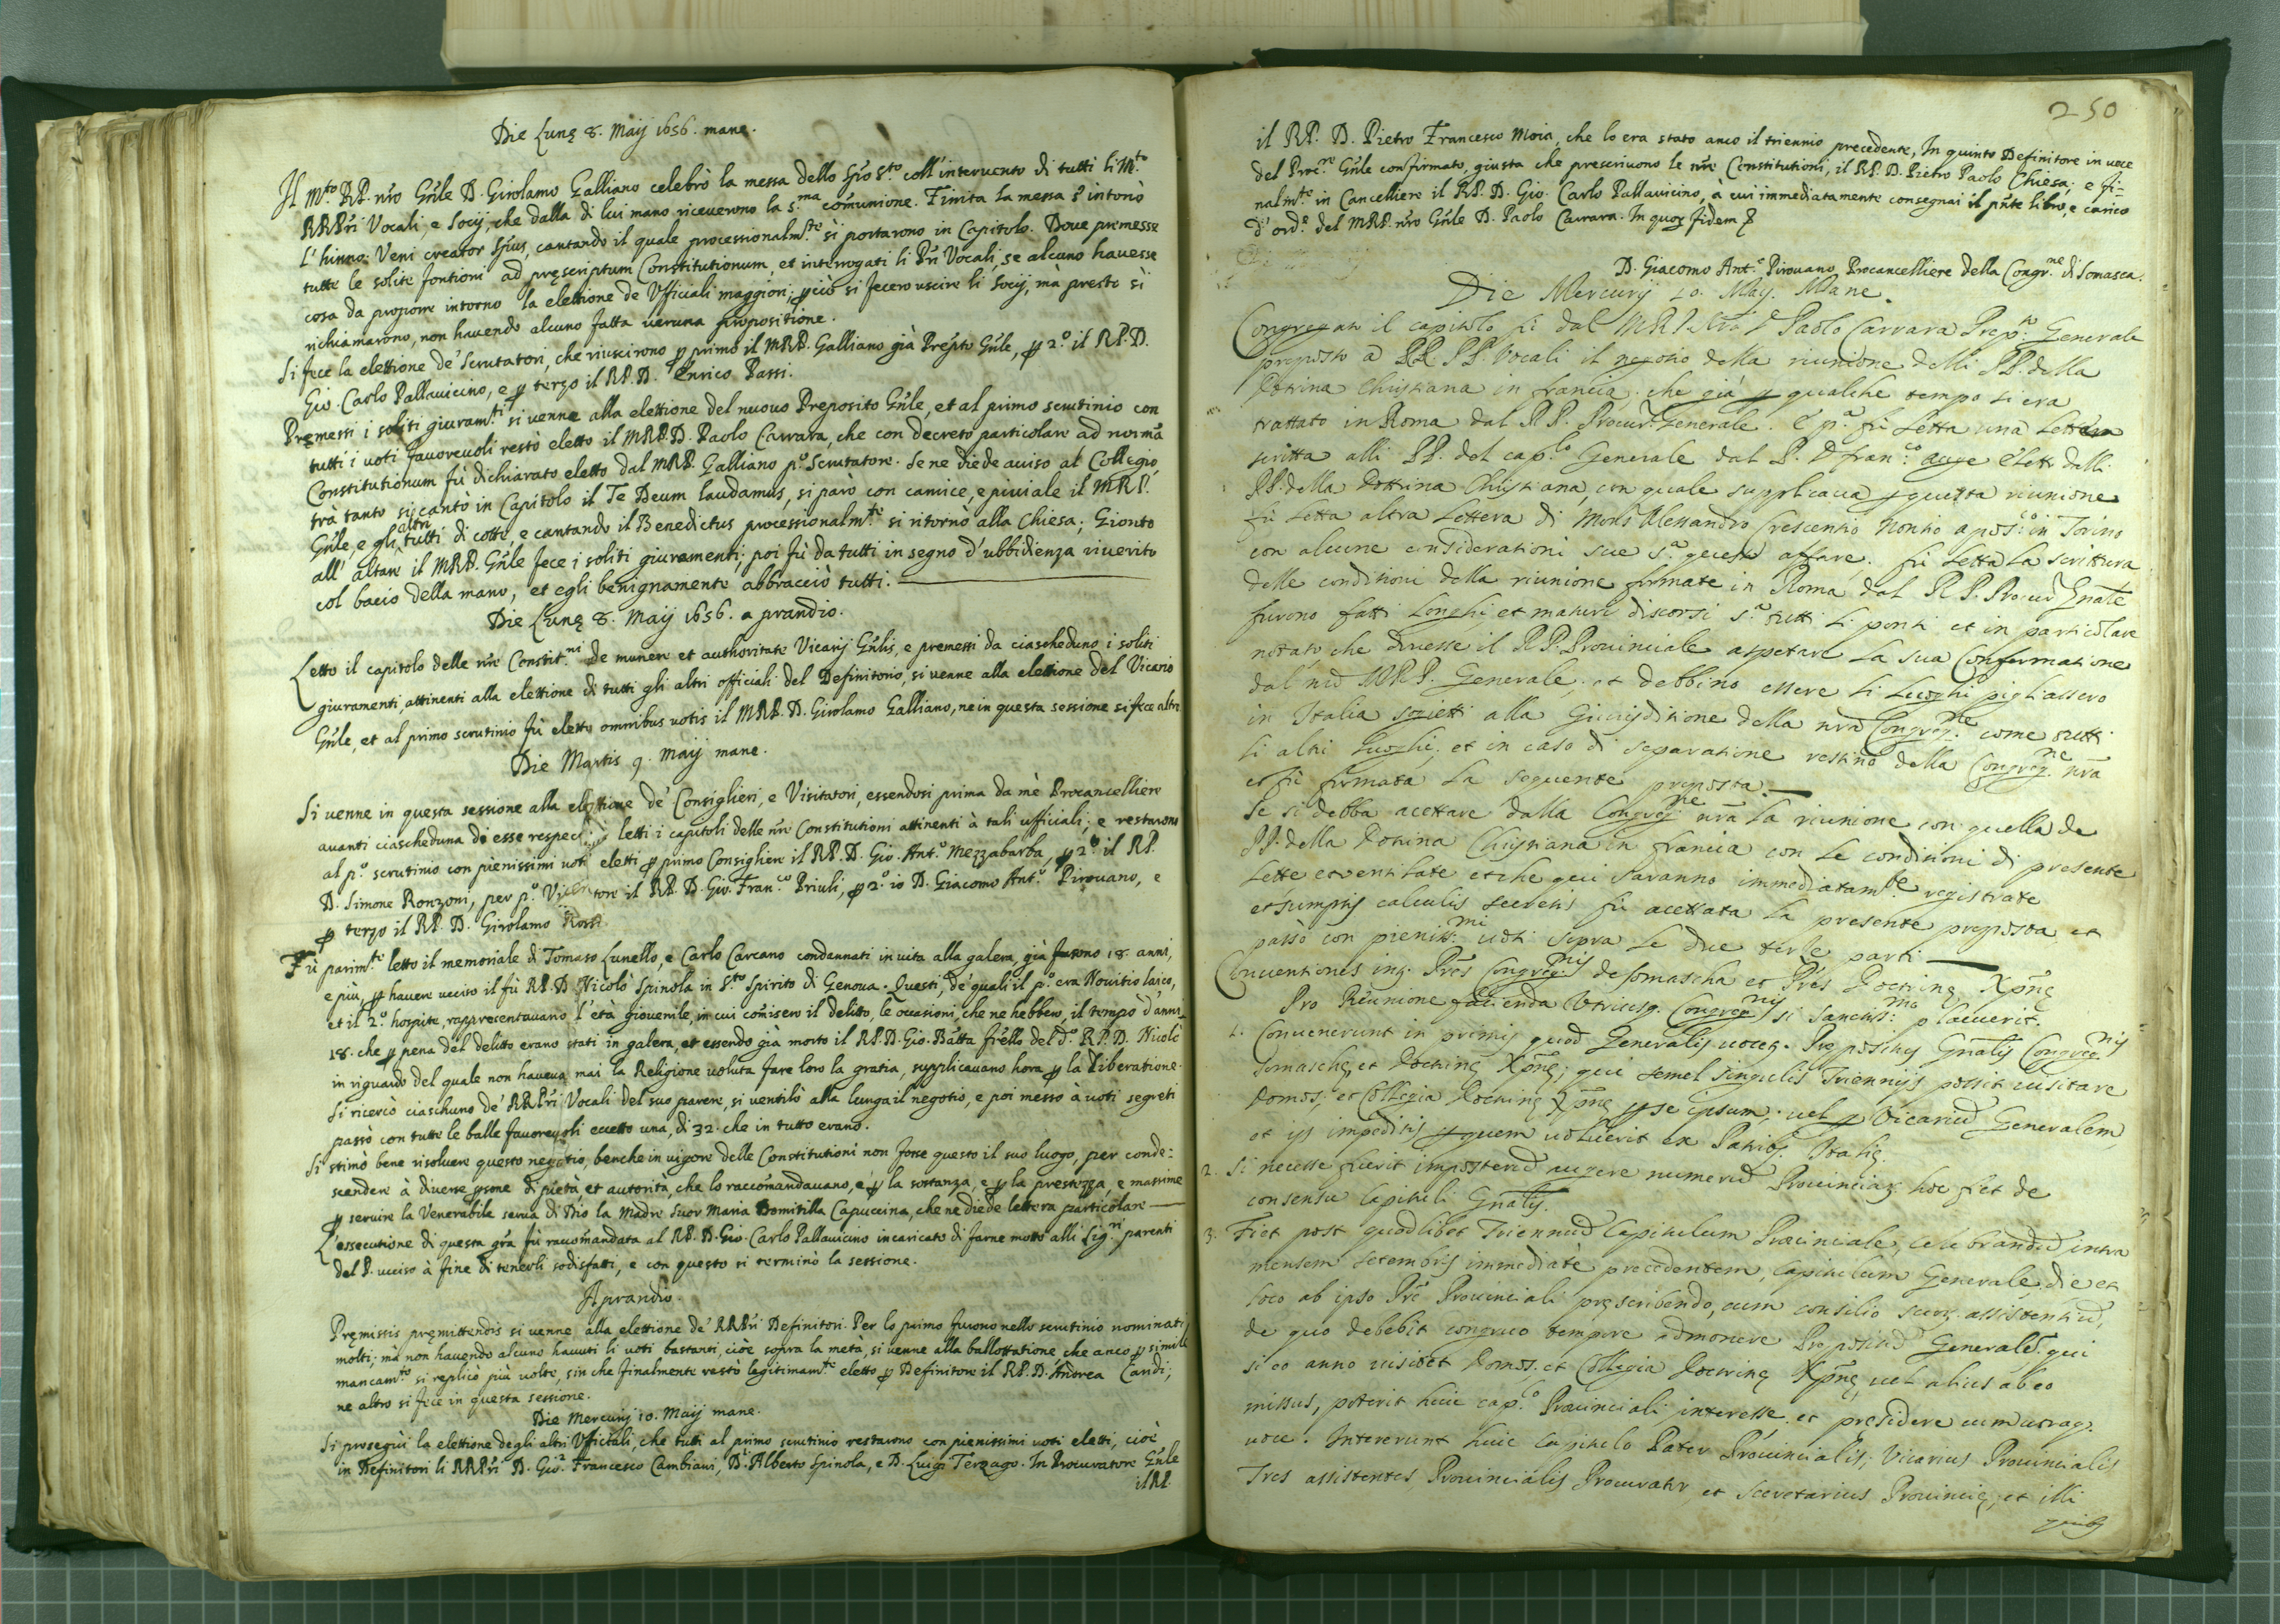 Die Lunę 8. Maij 1656. mane.
Il M.to RP. nro Gñle D. Girolamo Galliano celebrò la messa dello Spo S.to coll'intervento di tutti li M.to
RRPri Vocali, e Socij, che dalla di lui mano riceverono la s.ma comunione. Finita la messa s'intonò
l'hinno: Veni creator Spus, cantando il quale processionalm.te si portarono in Capitolo. Dove premesse
tutte le solite fontioni ad pręscriptum Constitutionum, et interrogati li Pri Vocali, se alcuno havesse
cosa da proporre intorno la elettione de Ufficiali maggiori; ꝑciò si fecero uscire li Socij, mà presto si
richiamarono, non havendo alcuno fatta veruna propositione.
Si fece la elettione de' Scrutatori, che riuscirono ꝑ primo il MRP. Galliano già Preṕto Gñle, ꝑ 2.o il RP. D.
Gio. Carlo Pallavicino, e ꝑ terzo il RP. D. Enrico Passi.
Premessi i soliti giuram.ti si venne alla elettione del nuovo Preposito Gñle, et al primo scrutinio con
tutti i voti favorevoli restò eletto il MRP. D. Paolo Carrara, che con decreto particolare ad normã
Constitutionum fù dichiarato eletto dal MRP. Galliano p.o Scrutatore. Se ne diede avviso al Collegio,
trà tanto si cantò in Capitolo il Te Deum laudamus, si parò con camice, e piviale il MRP.
Gñle, e gli altri tutti di cotte, e cantando il Benedictus processionalm.te si ritornò alla Chiesa; Gionto
all'altare il MRP. Gñle fece i soliti giuramenti; poi fù da tutti in segno d'ubbidienza riverito
col bacio della mano, et egli benignamente abbracciò tutti.
Die Lunę 8. Maij 1656. a prandio.
Letto il capitolo delle nre Constit.ni De munere et authoritate Vicarij Gñlis, e premessi da ciascheduno i soliti
giuramenti, attinenti alla elettione di tutti gli altri officiali del Definitorio, si venne alla elettione del Vicario
Gñle, et al primo scrutinio fù eletto omnibus votis il MRP. D. Girolamo Galliano, ne in questa sessione si fece altro
Die Martis 9. Maij mane.
Si venne in questa sessione alla elettione de' Consiglieri, e Visitatori, essendosi prima da mè Procancelliere
avanti ciascheduna di esse letti i capitoli delle nre Constitutioni attinenti à tali ufficiali; e restarono
al p.o scrutinio con pienissimi voti eletti ꝑ primo Consigliere il RP. D. Gio. Ant.o Mezzabarba, ꝑ 2.o il RP.
D. Simone Ronzoni, per p.o il RP. D. Gio. Fran.co Priuli, ꝑ 2.o io D. Giacomo Ant.o Pirovano, e
ꝑ terzo il RP. D. Girolamo Rossi
Fù parim.te letto il memoriale di Tomaso Lunello, e Carlo Carcano condannati in vita alla galera, già furono 18. anni,
e più, ꝑ havere ucciso il fù RP. D. Nicolò Spinola in S.to Spirito di Genova. Questi, de' quali il p.o era Novitio laico,
et il 2.o hospite, rappresentavano l'età giovenile, in cui comisero il delitto, le occasioni, che ne hebbero, il tempo d'anni
18. che ꝑ pena del delitto erano stati in galera, et essendo già morto il RP. D. Gio. Batta frello del d.o RP. D. Nicolò
in riguardo del quale non haveva mai la Religione voluta fare loro la gratia, supplicavano hora ꝑ la liberatione.
Si ricercò ciaschuno de' RRPri Vocali del suo parere, si ventilò alla lunga il negotio, e poi messo à voti segreti
passò con tutte le balle favorevoli eccetto una, di 32. che in tutto erano.
Si stimò bene risolvere questo negotio, benche in vigore delle Constitutioni non fosse questo il suo luogo, per conde=
scendere à diverse ꝑsone di pietà, et autorità, che lo raccomandavano, e ꝑ la sostanza, e ꝑ la prestezza, e massime
ꝑ servire la Venerabile serva di Dio la Madre Suor Maria Domitilla Capuccina, che ne diede lettera particolare
L'essecutione di questa gra fù raccomandata al RP. D. Gio. Carlo Pallavicino incaricato di farne motto alli Sig.ri parenti
del P. ucciso à fine di tenerli sodisfatti, e con questo si terminò la sessione.
A prandio.
Pręmissis pręmittendis si venne alla elettione de' RRPri Definitori. Per lo primo furono nello scrutinio nominati
molti; mà non havendo alcuno havuti li voti bastanti, cioè sopra la metà, si venne alla ballottatione che anco ꝑ simile
mancam.to si replicò più volte, sin che finalmente restò legitimam.te eletto ꝑ Definitore il RP. D. Andrea Candi;
ne altro si fece in questa sessione.
Die Mercurij 10. Maij mane.
Si proseguì la elettione degli altri Ufficiali, che tutti al primo scrutinio restarono con pienissimi voti eletti, cioè
in Definitori li RRPri D. Gio. Francesco Cambiani, D. Alberto Spinola, e D. Luigi Terzago. In Procuratore Gñle
il RP.
250
il RP. D. Pietro Francesco Moia, che lo era stato anco il triennio precedente, In quinto Definitore in voce
del Proc.re Gñle confirmato, giusta che prescrivono le nre Constitutioni, il RP. D. Pietro Paolo Chiesa; e fi=
nalm.te in Cancelliere il RP. D. Gio. Carlo Pallavicino, à cui immediatamente consegnai il pnte libro, e carico
d'ord.e del MRP. nro Gñle D. Paolo Carrara. In quoꝝ fidem
D. Giacomo Ant.o Pirovano Procancelliere della Congr.ne di Somasca.
Die Mercurij 10. Maij. Mane.
Congregato il capitolo fù dal MRP Nro D Paolo Carrara Prep.to Generale
proposto a RR. PP. Vocali il negotio della riunione delli PP. della
Dottrina Christiana in francia, che già ꝑ qualche tempo si era
trattato in Roma dal RP. Procur. Generale. E p.a fù letta una lettera
scritta alli PP. del cap.lo Generale dal P. D fran.co dalli
PP. della Dottrina Christiana, con quale supplicava ꝑ questa riunione
fù letta altra lettera di Mons Alessandro Crescentio Nontio apos.co in Torino
con alcune considerationi sue s.a questo affare. fù letta la scrittura
delle conditioni della riunione firmate in Roma dal R P. Procur Gnale
furono fatti longhi et maturi discorsi s.a tutti li ponti et in particolare
notato che dovesse il RP. Provinciale aspetare la sua Confermatione
dal nro MRP. Generale, et debbino essere li luoghi pigliassero
in Italia sogietti alla Giurisditione della nra Congreg.ne come tutti
li altri luoghi, et in caso di separatione restino della Congreg.ne nra
et fù firmata la seguente proposta.
Se si debba acettare dalla Congreg.ne nra la riunione con quella de
PP. della Dotrina Christiana in francia con le conditioni di presente
lette et ventilate et che qui saranno immediatam.te registrate
et sumptis calculis secretis fù acettata la presente proposta et
passò con pieniss.mi voti sopra le due terze parti.
Conventiones inq. Pres Congreg.nis de Somascha et Pres Doctrinę Xpnę
Pro Reunione facienda Utriusq. Congreg.nis si Sanctiss.mo placuerit.
1. Convenerunt in primis quod Generalis vocet. Prepositus Gnalis Congreg.nis
Somaschę, et Doctrinę Xpnę; qui semel singulis Triennijs possit visitare
Domos, et Collegia Doctrinę Xpnę ꝑ se ipsum, vel ꝑ Vicariũ Generalem,
et ijs impeditis ꝑ quem voluerit ex Patribꝫ Italię.
2. Si necesse fuerit imposterũ augere numerũ Provinciaꝝ hoc fiet de
consensu Capituli Gnalis.
3. Fiet post quodlibet Trienniũ Capitulum Provinciale, celebrandũ intra
mensem 7embris immediatè precedentem, Capitulum Generale, die et
loco ab ipso Pre Provinciali pręscribendo, cum consilio suoꝝ assistentiũ,
de quo debebit congruo tempore admonere Prepositũ Generale. qui
si eo anno visitet Domos, et Collegia Doctrinę Xpnę, vel alius ab eo
missus, poterit huic cap.lo Provinciali interesse, et presidere cum utraq.
voce. Intererunt huic Capitulo Pater Provincialis, Vicarius Provincialis
Tres assistentes, Provincialis Procurator, et Secretarius Provincię, et illi
quibꝫ